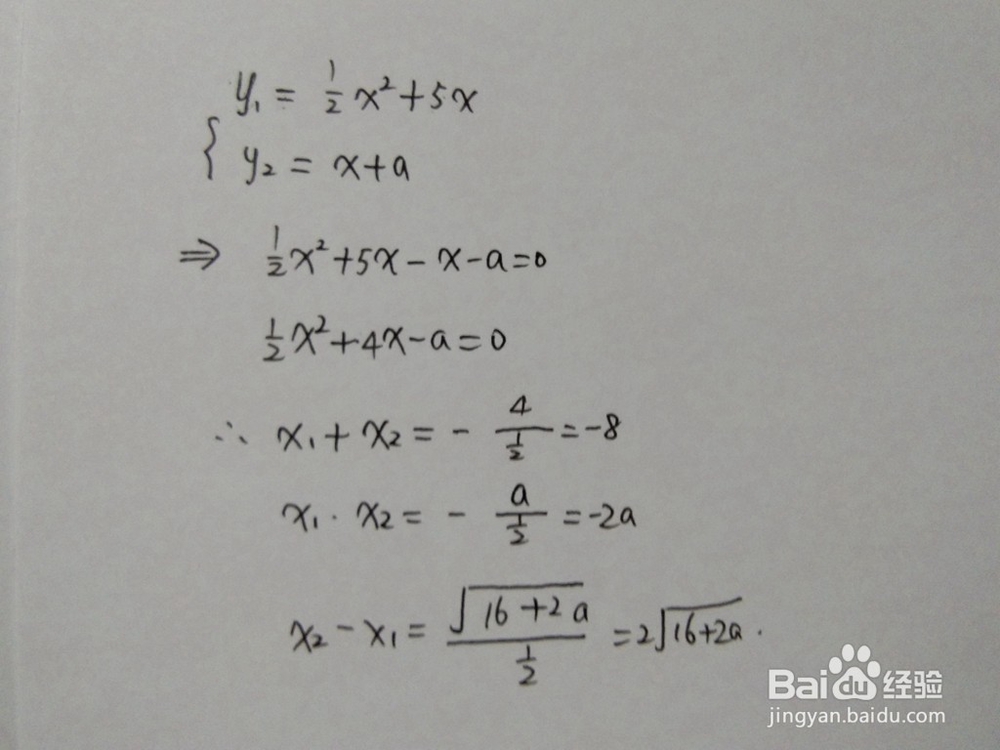 y₁ = 1/2 x² + 5x
{ y₂ = x + a
⇒ 1/2 x² + 5x - x - a = 0
1/2 x² + 4x - a = 0
∴ x₁ + x₂ = - 4/(1/2) = -8
x₁ · x₂ = - a/(1/2) = -2a
x₂ - x₁ = √(16+2a)/(1/2) = 2√(16+2a) .
Baidu 经验
jingyan.baidu.com